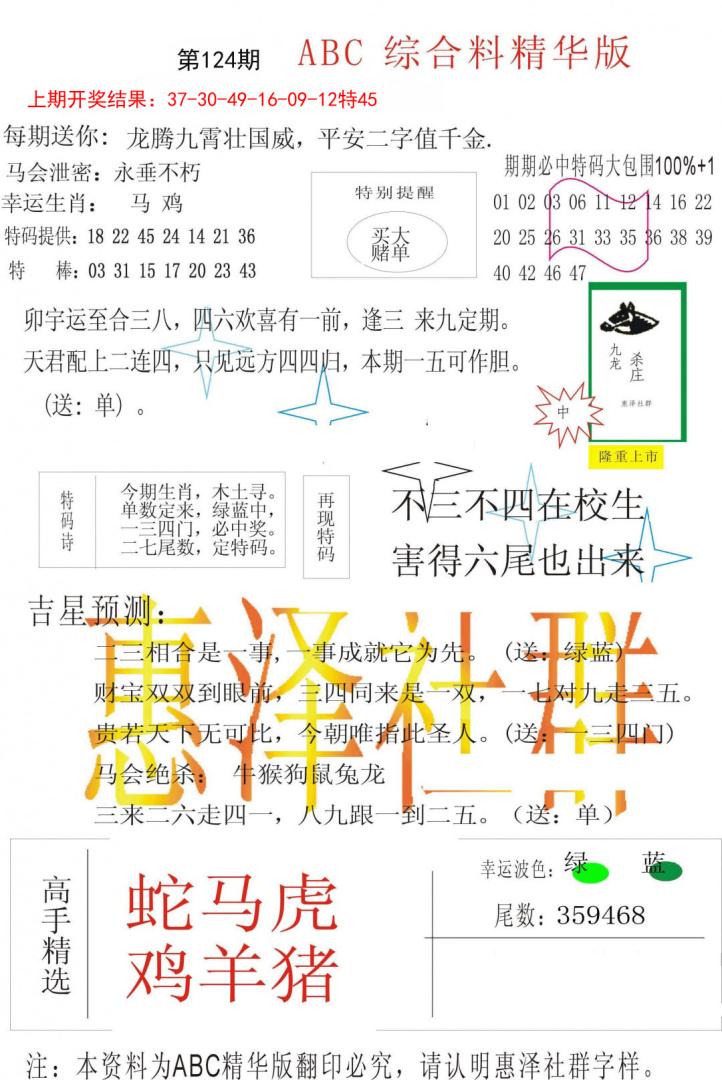 第124期 ABC 综合料精华版
上期开奖结果：37-30-49-16-09-12特45
每期送你：龙腾九霄壮国威，平安二字值千金.
马会泄密：永垂不朽
幸运生肖： 马 鸡
特码提供：18 22 45 24 14 21 36
特 棒：03 31 15 17 20 23 43
特别提醒
买大
赌单
期期必中特码大包围100%+1
01 02 03 06 11 12 14 16 22
20 25 26 31 33 35 36 38 39
40 42 46 47
卯宇运至合三八，四六欢喜有一前，逢三 来九定期。
天君配上二连四，只见远方四四归，本期一五可作胆。
(送：单) 。
九龙
杀庄
惠泽社群
中
隆重上市
特码诗
今期生肖，木土寻。
单数定来，绿蓝中，
一三四门，必中奖。
二七尾数，定特码。
再现特码
不三不四在校生
害得六尾也出来
吉星预测：
惠泽社群
二三相合是一事,一事成就它为先。(送：绿蓝)
财宝双双到眼前，三四同来是一双，一七对九走三五。
贵若天下无可比，今朝唯指此圣人。(送：一三四门)
马会绝杀： 牛猴狗鼠兔龙
三来二六走四一，八九跟一到二五。（送：单）
高手精选
蛇马虎
鸡羊猪
幸运波色：绿 蓝
尾数：359468
注：本资料为ABC精华版翻印必究，请认明惠泽社群字样。